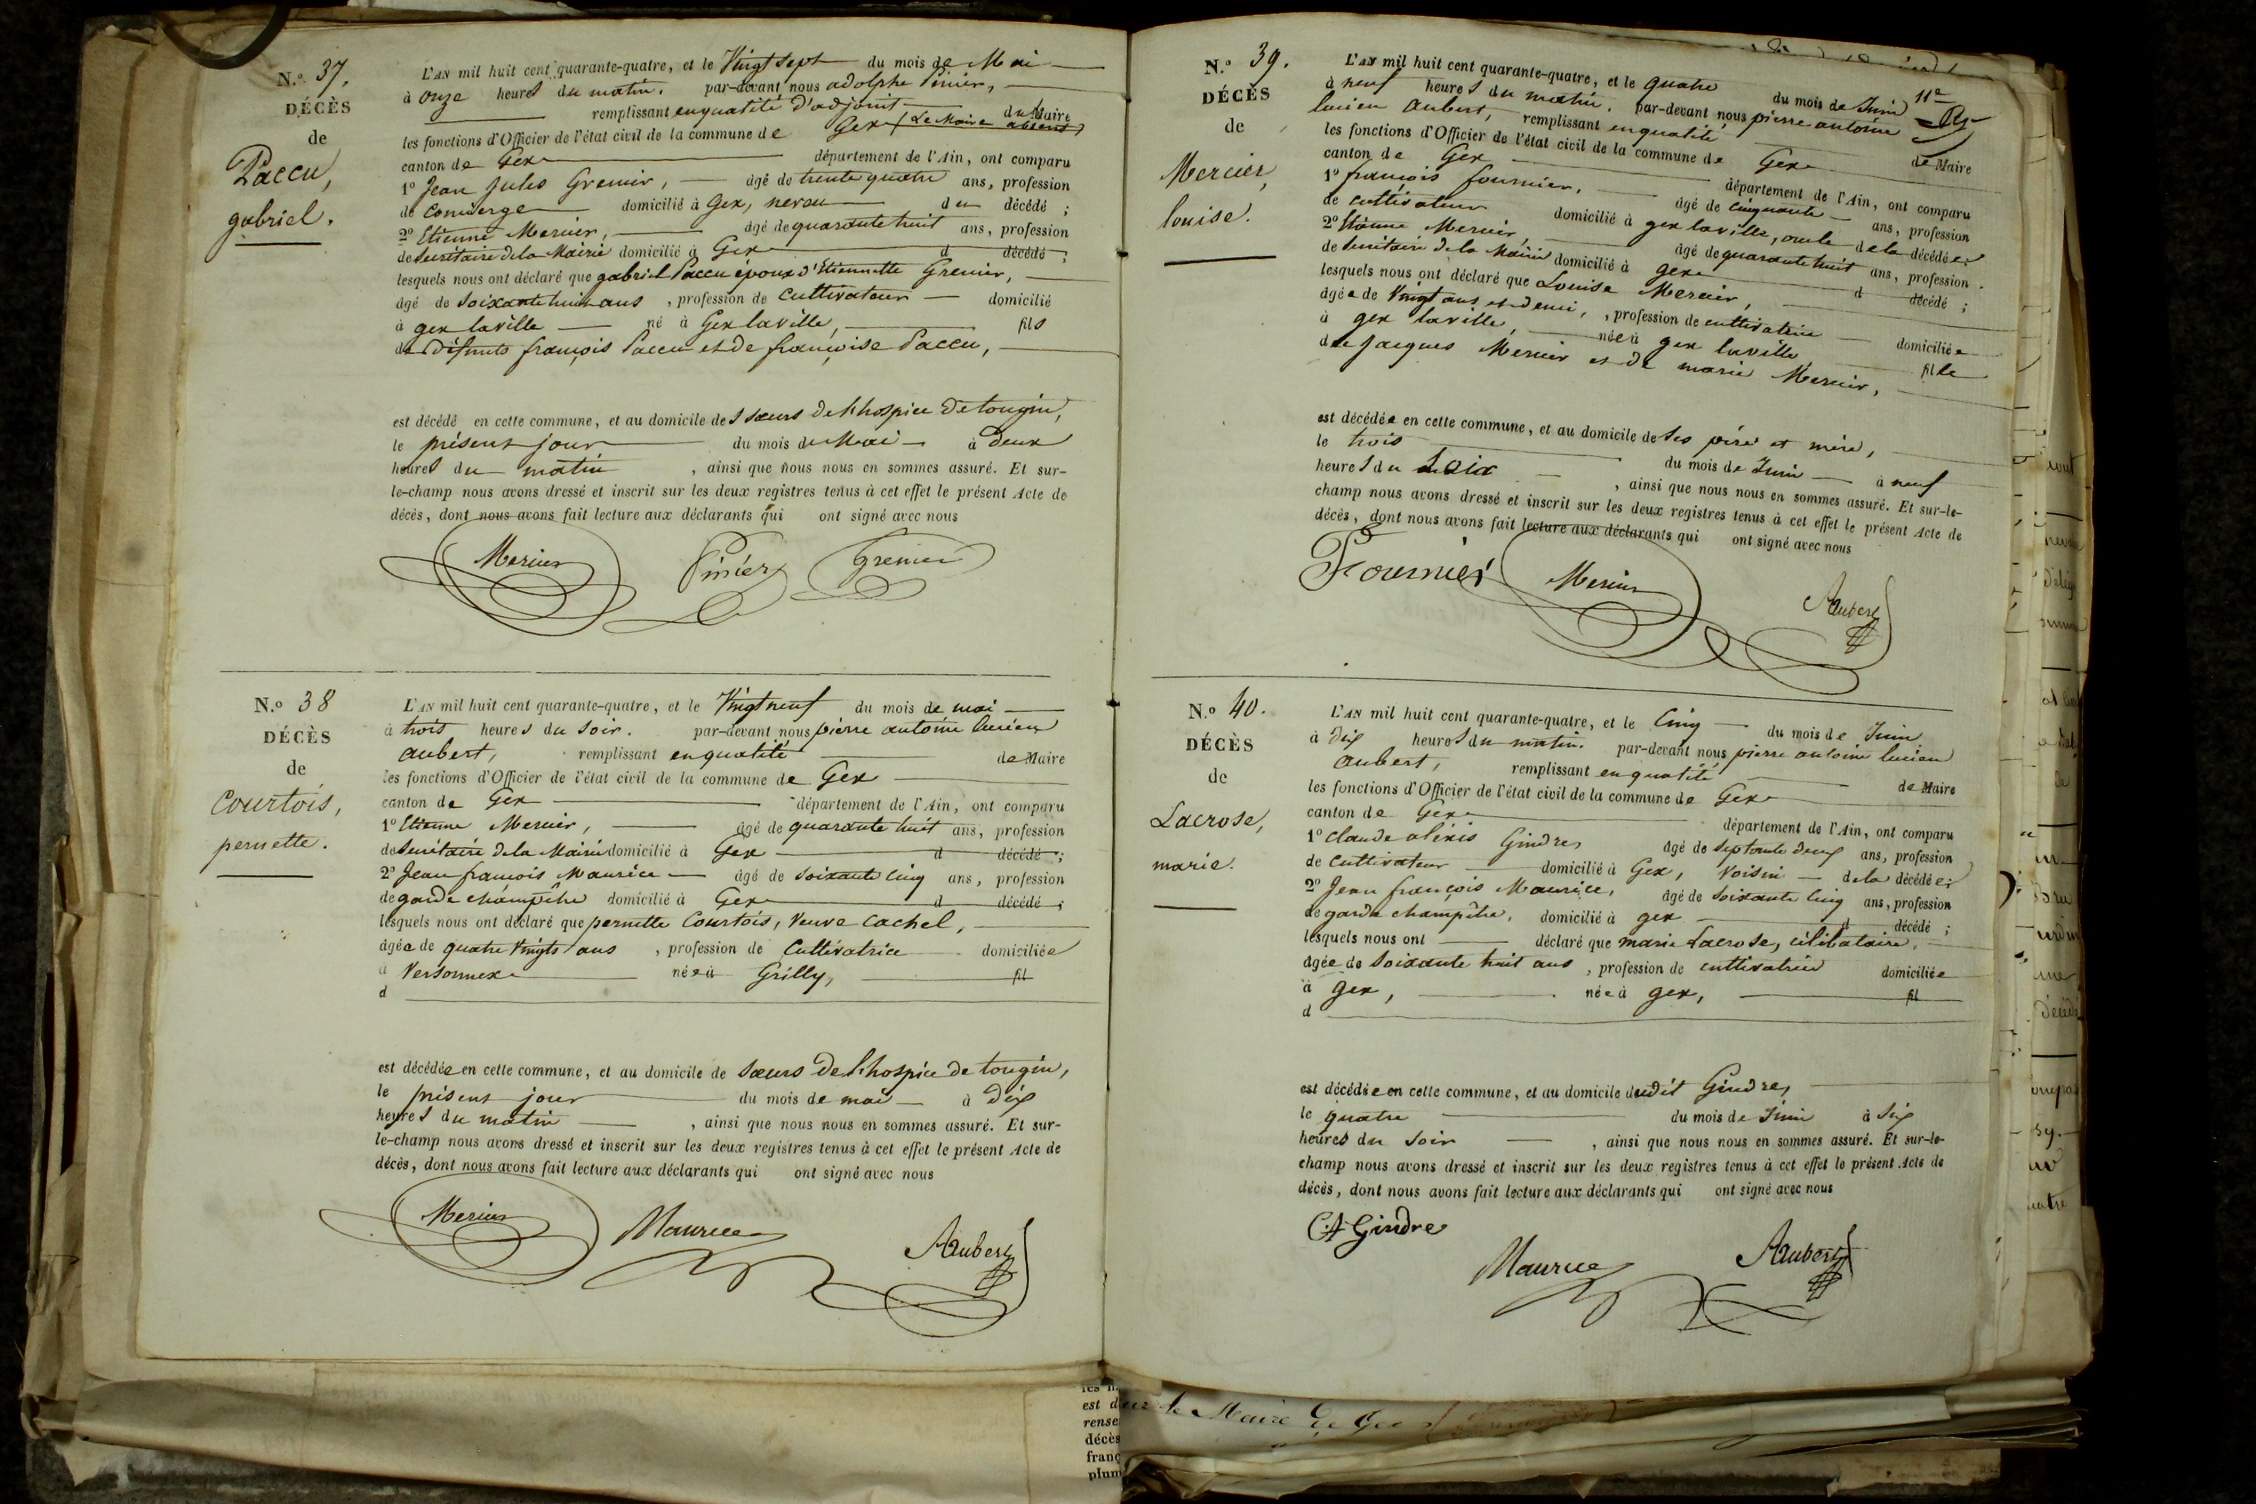 N.° 37.
DÉCÈS
de
Paccu,
gabriel.
L'AN mil huit cent quarante-quatre, et le Vingt sept du mois de Mai
à onze heures du matin. par-devant nous adolphe Pinier,
remplissant en qualité d'adjoint du Maire
les fonctions d'Officier de l'état civil de la commune de Gex (Le Maire absent)
canton de Gex département de l'Ain, ont comparu
1° Jean Jules Grenier, âgé de trente quatre ans, profession
de concierge domicilié à Gex, neveu du décédé ;
2° Etienne Mercier, âgé de quarante huit ans, profession
de Secrétaire de la Mairie domicilié à Gex d décédé ;
lesquels nous ont déclaré que gabriel Paccu époux d'Etiennette Grenier,
âgé de soixante huit ans , profession de cultivateur domicilié
à gex laville né à Gex laville, fils
de défunts françois Paccu et de françoise Paccu,
est décédé en cette commune, et au domicile des sœurs de l'hospice de tougin,
le présent jour du mois de Mai à deux
heures du matin , ainsi que nous nous en sommes assuré. Et sur-
le-champ nous avons dressé et inscrit sur les deux registres tenus à cet effet le présent Acte de
décès, dont nous avons fait lecture aux déclarants qui ont signé avec nous
Mercier Pinier Grenier
N.° 38
DÉCÈS
de
Courtois,
pernette.
L'AN mil huit cent quarante-quatre, et le Vingt neuf du mois de mai
à trois heures du soir. par-devant nous pierre antoine lucien
aubert, remplissant en qualité de Maire
les fonctions d'Officier de l'état civil de la commune de Gex
canton de Gex département de l'Ain, ont comparu
1° Etienne Mercier, âgé de quarante huit ans, profession
de Secrétaire de la Mairie domicilié à Gex d décédé ;
2° Jean françois Maurice âgé de soixante cinq ans, profession
de garde champêtre domicilié à Gex d décédé ;
lesquels nous ont déclaré que pernette Courtois, Veuve Cachel,
âgée de quatre Vingts ans , profession de Cultivatrice domiciliée
à Versonnex née à Grilly, fil
d
est décédée en cette commune, et au domicile de sœurs de l'hospice de tougin,
le présent jour du mois de mai à dix
heures du matin , ainsi que nous nous en sommes assuré. Et sur-
le-champ nous avons dressé et inscrit sur les deux registres tenus à cet effet le présent Acte de
décès, dont nous avons fait lecture aux déclarants qui ont signé avec nous
Mercier Maurice Aubert
N.° 39.
DÉCÈS
de
Mercier,
louise.
L'AN mil huit cent quarante-quatre, et le quatre du mois de Juin 11e
à neuf heures du matin. par-devant nous pierre antoine
lucien aubert, remplissant en qualité de Maire
les fonctions d'Officier de l'état civil de la commune de Gex
canton de Gex département de l'Ain, ont comparu
1° françois fournier, âgé de cinquante ans, profession
de cultivateur domicilié à gex laville, oncle de la décédée ;
2° Etienne Mercier, âgé de quarante huit ans, profession
de Secrétaire de la Mairie domicilié à gex d décédé ;
lesquels nous ont déclaré que Louise Mercier,
âgée de Vingt ans et demi, , profession de cultivatrice domiciliée
à gex laville, née à gex laville fille
de jacques Mercier et de marie Mercier,
est décédée en cette commune, et au domicile de ses père et mère,
le trois du mois de Juin à neuf
heures du soir , ainsi que nous nous en sommes assuré. Et sur-le-
champ nous avons dressé et inscrit sur les deux registres tenus à cet effet le présent Acte de
décès, dont nous avons fait lecture aux déclarants qui ont signé avec nous
Fournier Mercier Aubert
N.° 40.
DÉCÈS
de
Lacrose,
marie.
L'AN mil huit cent quarante-quatre, et le Cinq du mois de Juin
à dix heures du matin. par-devant nous pierre antoine lucien
aubert, remplissant en qualité de Maire
les fonctions d'Officier de l'état civil de la commune de Gex
canton de Gex département de l'Ain, ont comparu
1° claude alexis Gindre, âgé de septante deux ans, profession
de cultivateur domicilié à Gex, Voisin de la décédée ;
2° Jean françois Maurice, âgé de soixante cinq ans, profession
de garde champêtre, domicilié à gex d décédé ;
lesquels nous ont déclaré que marie Lacrose, célibataire,
âgée de soixante huit ans , profession de cultivatrice domiciliée
à gex, née à gex, fil
d
est décédée en cette commune, et au domicile dudit Gindre,
le quatre du mois de Juin à six
heures du soir , ainsi que nous nous en sommes assuré. Et sur-le-
champ nous avons dressé et inscrit sur les deux registres tenus à cet effet le présent Acte de
décès, dont nous avons fait lecture aux déclarants qui ont signé avec nous
CA Gindre
Maurice Aubert
le Maire de Gex